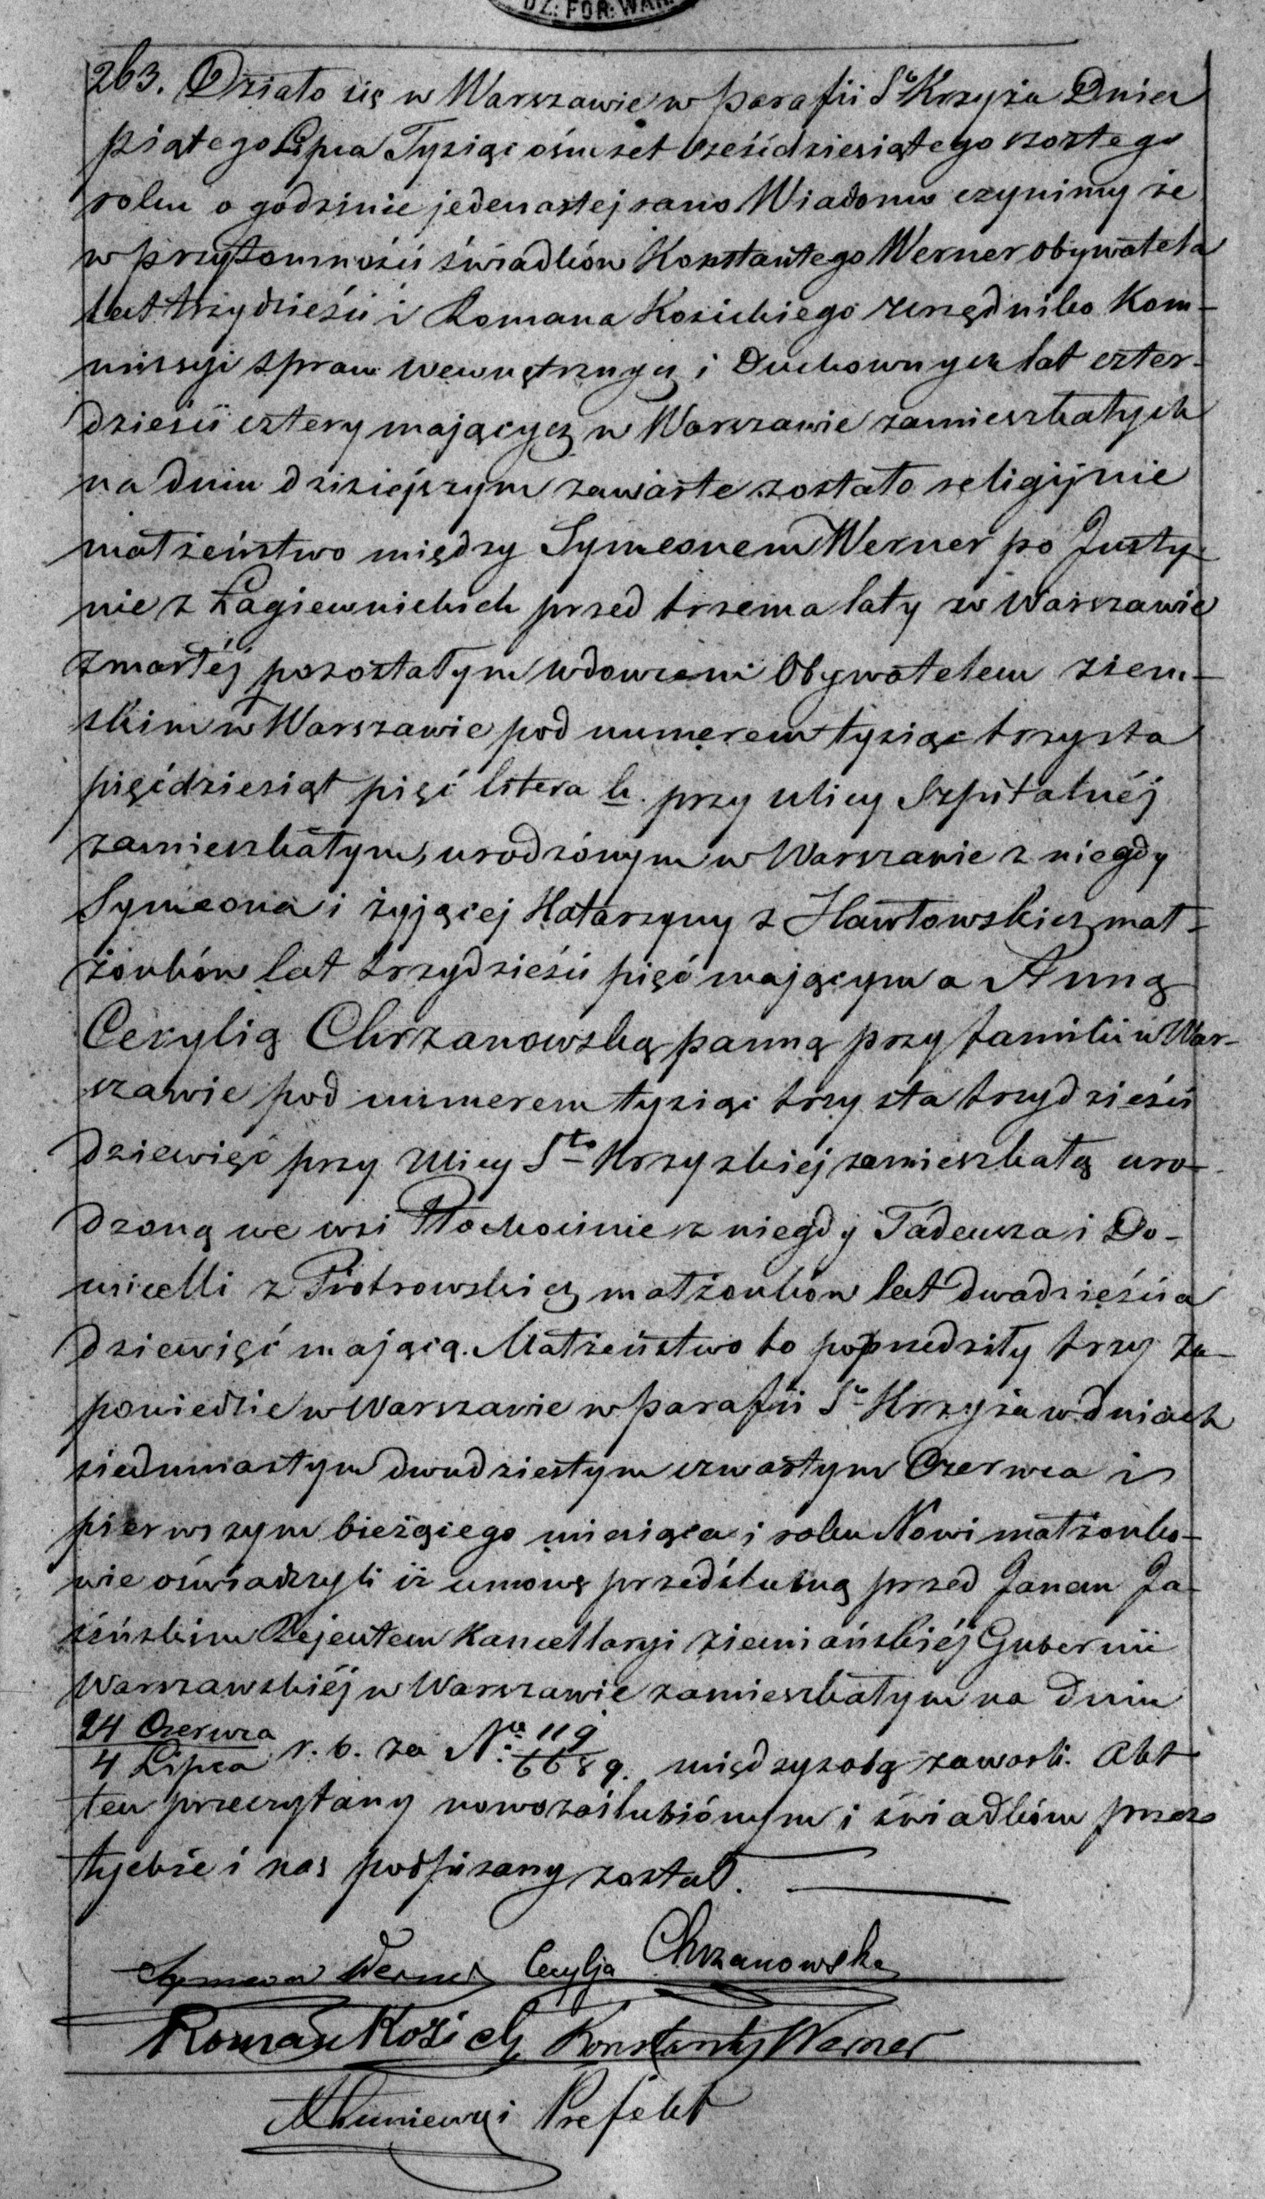 DZ: FOR: WAR.
263. Działo się w Warszawie w parafii Sgo Krzyża Dnia
piątego Lipca Tysiąc ośmset sześćdziesiątego szostego
roku o godzinie jedenastej rano Wiadomo czynimy że
w przytomności świadków Konstantego Werner obywatela
lat trzydzieści i Romana Kozickiego urzędnika Kom-
missyi spraw wewnętrznych i Duchownych lat czter-
dzieści cztery mających w Warszawie zamieszkałych
na dniu dzisiejszym zawarte zostało religijnie
małżeństwo między Symeonem Werner po Justy-
nie z Łagiewnickich przed trzema laty w Warszawie
zmarłéj pozostałym wdowcem Obywatelem ziem-
skim w Warszawie pod numerem tysiąc trzysta
pięćdziesiąt pięć litera b. przy ulicy Szpitalnéj
zamieszkałym, urodzonym w Warszawie z niegdy
Symeona i żyjącej Katarzyny z Hawłowskich mał-
żonków lat trzydzieści pięć mającym a Anną
Cecylią Chrzanowską panną przy familii w War-
szawie pod numerem tysiąc trzysta trzydzieści
dziewięć przy Ulicy Sto Krzyzkiej zamieszkałą uro-
dzoną we wsi Płochocinie z niegdy Tadeusza i Do-
micelli z Piotrowskich małżonków lat dwadzieścia
dziewięć mającą. Małżeństwo to poprzedziły trzy za-
powiedzie w Warszawie w parafii Sgo Krzyża w dniach
siedmnastym dwudziestym czwartym Czerwca i
pierwszym bieżącego miesiąca i roku Nowi małżonko-
wie oświadczyli iż umowę przedślubną przed Janem Ja-
sińskim Rejentem Kancellaryi ziemiańskiéj Gubernii
Warszawskiéj w Warszawie zamieszkałym na dniu
24 Czerwca/4 Lipca r. b. za No 119/6689. między sobą zawarli. Akt
ten przeczytany nowozaślubiónym i świadkóm przez
tychże i nas podpisany został.
Symeon Werner Cecylja Chrzanowska
Roman Kozicki Konstanty Werner
Prefekt